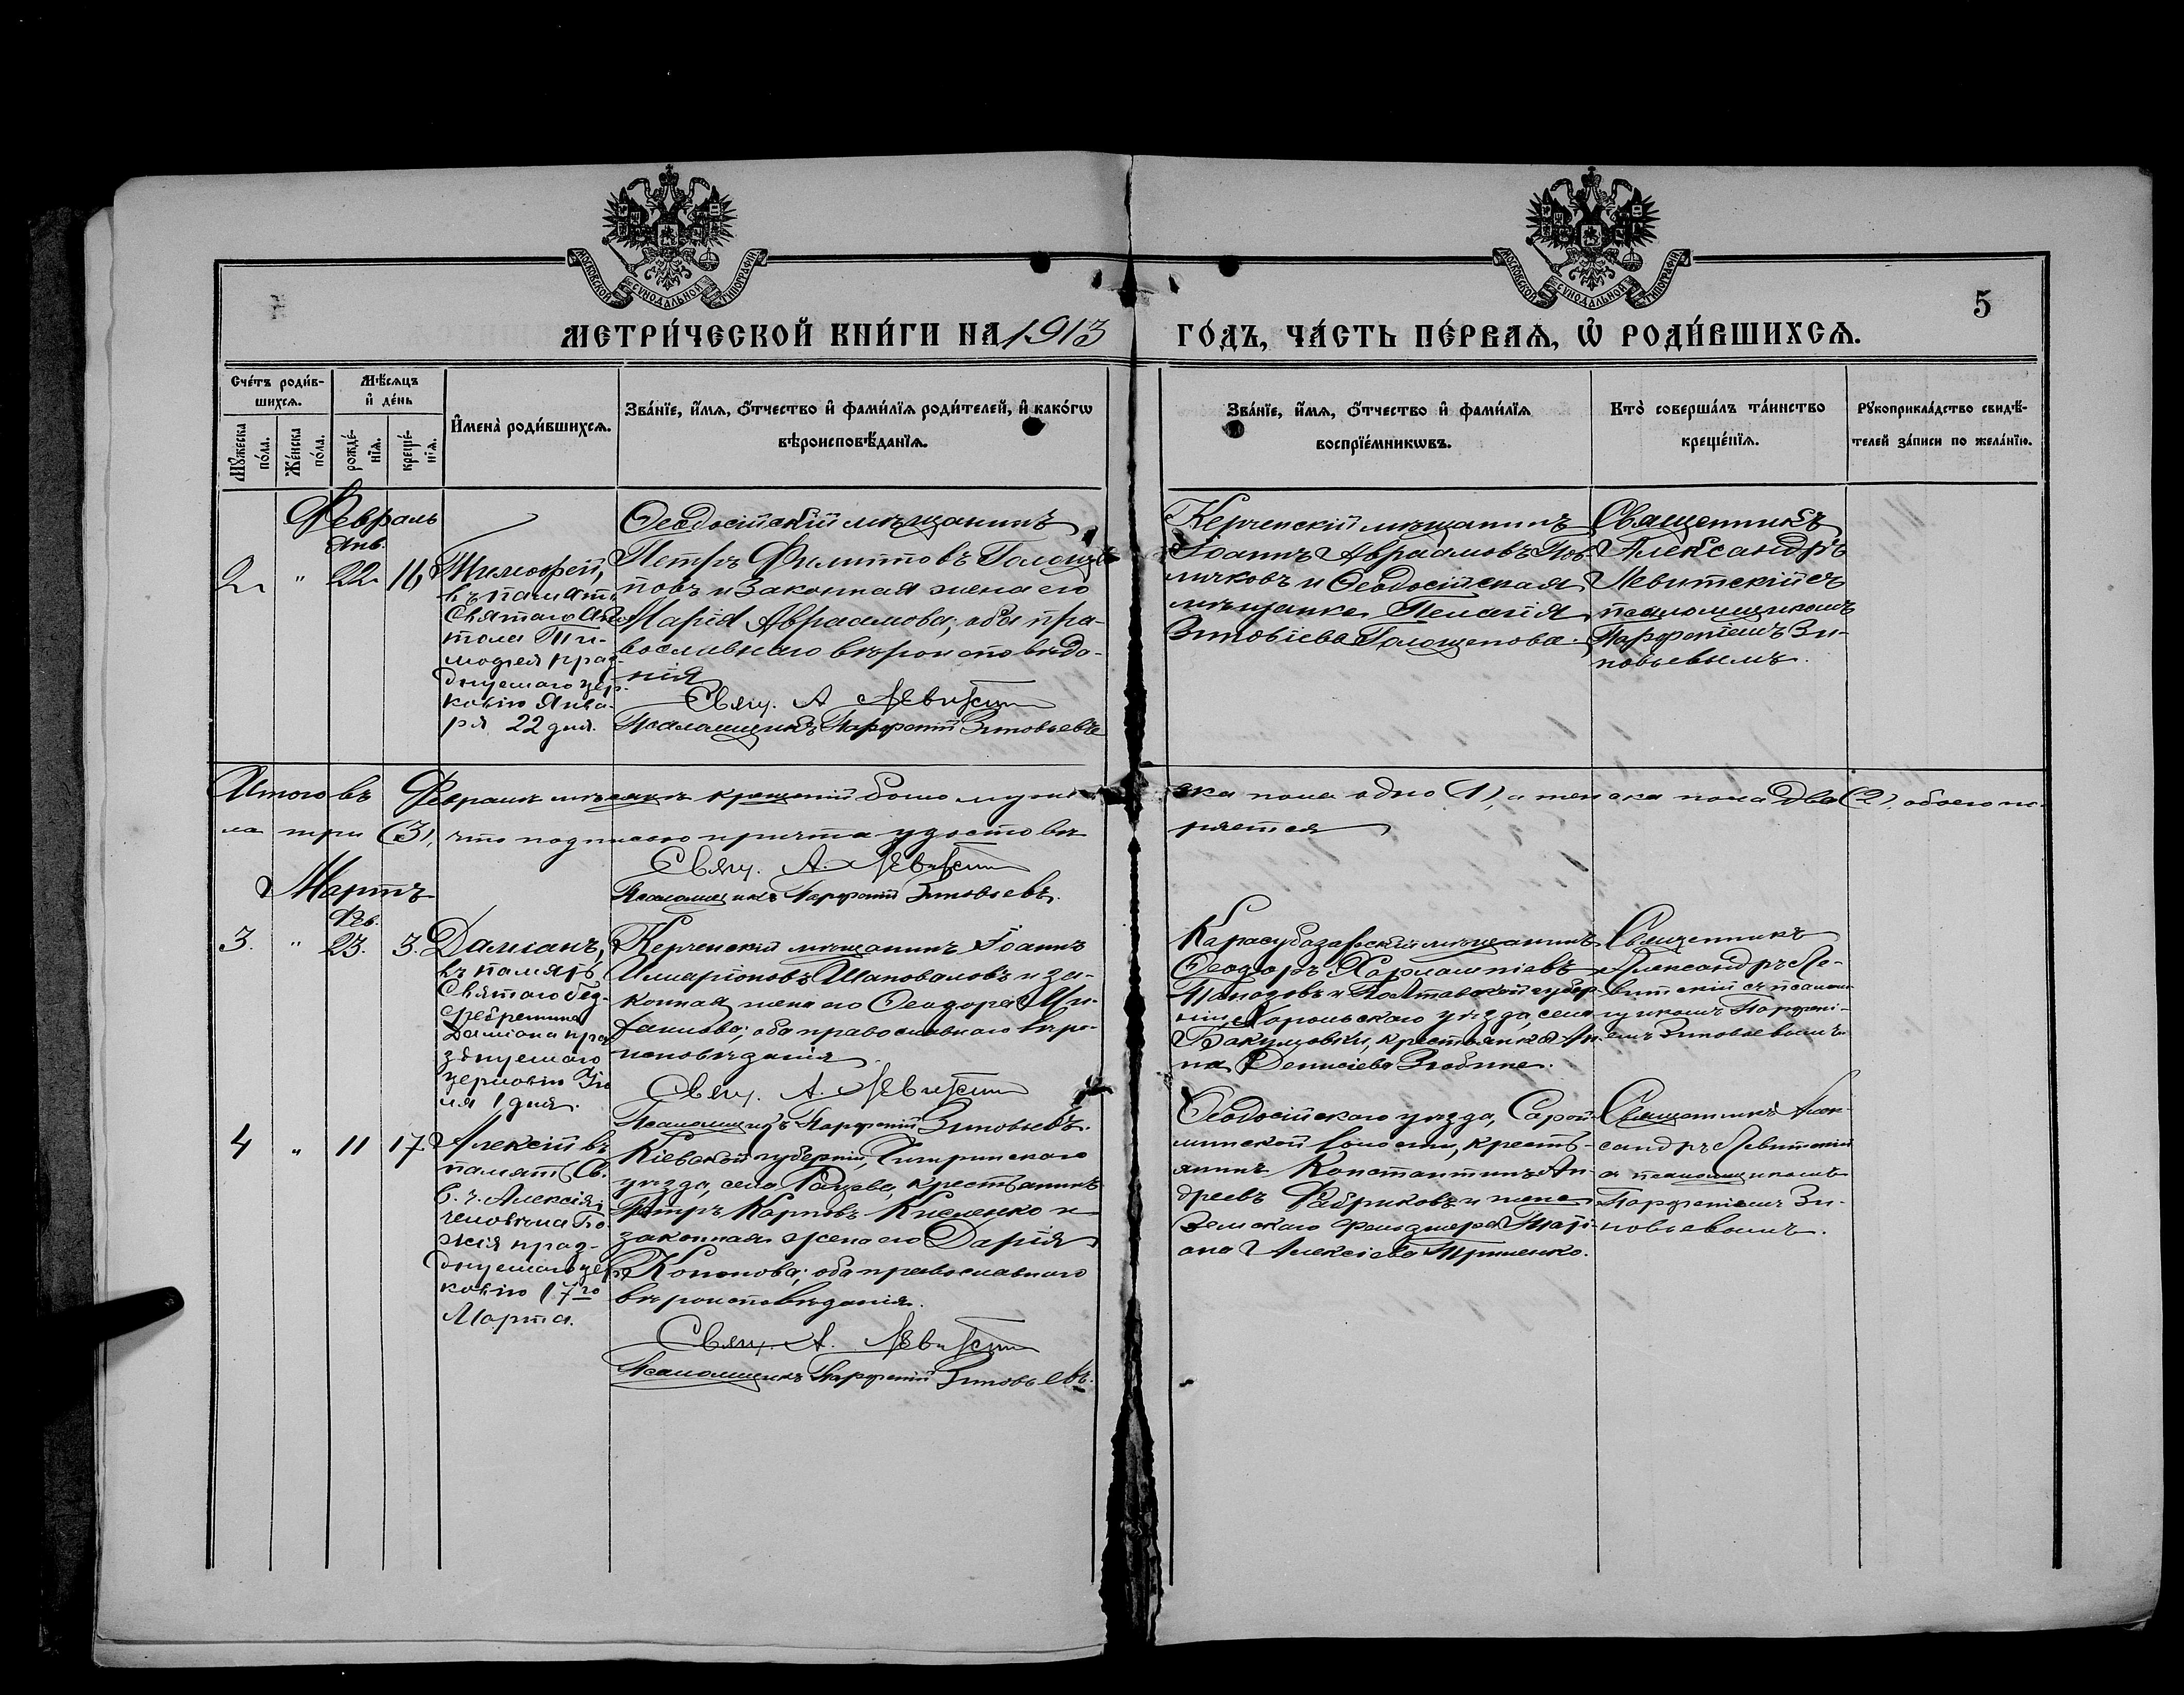 МОСКОВСКОЙ СѴНОДАЛЬНОЙ ТИПОГРАФІИ
МОСКОВСКОЙ СѴНОДАЛЬНОЙ ТИПОГРАФІИ
5
МЕТРИ́ЧЕСКОЙ КНИ́ГИ НА 1913 ГО́ДЪ, ЧА́СТЬ ПЕ́РВАѦ, Ѡ҆ РОДИ́ВШИХСѦ.
Сче́тъ роди́в-
шихсѧ.
Мѣ́сѧцъ
и҆ де́нь
Мꙋ́жеска по́ла.
Же́нска по́ла.
рожде́-
нїѧ.
креще́-
нїѧ.
И҆мена̀ роди́вшихсѧ.
Зва́нїе, и҆́мѧ, ѻ҆́тчество и҆ фами́лїѧ роди́телей, и҆ како́гѡ
вѣроисповѣ́данїѧ.
Зва́нїе, и҆́мѧ, ѻ҆́тчество и҆ фами́лїѧ
воспрїе́мникѡвъ.
Кто̀ соверша́лъ та́инство
креще́нїѧ.
Рꙋкоприкла́дство свидѣ́-
телей за́писи по жела́нїю.
Февраль
Янв.
2 " 22 16
Тимофей,
въ память
Святаго Апо
стола Ти-
мофея праз-
днуемаго цер-
ковію Янва-
ря 22 дня.
Ѳеодосійскій мѣщанинъ
Петръ Филипповъ
повъ и законная жена его
Марія Авраамова; оба пра-
вославнаго вѣроисповѣда-
нія
Свящ. А Левитскій
Псаломщикъ Парфеній Зиновьевъ
Керченскій мѣщанинъ
Іоаннъ Авраамовъ
личковъ и Ѳеодосійская
мѣщанка Пелагія
Зиновіева Галощепова.
Священникъ
Александръ
Левитскій съ
псаломщикомъ
Парфеніемъ Зи-
новьевымъ.
Итого въ Февралѣ мѣсяцѣ крещеній было муже ска пола одно (1), а женска пола два (2), обоего по-
ла три (3), что подписью причта удостовѣ ряется
Свящ. А. Левитскій
Псаломщикъ Парфеній Зиновьевъ.
Мартъ
Фев.
3. " 23. 3.
Даміанъ,
въ память
Святаго без-
сребренника
Даміана пра
зднуемаго
церковію Ію
ля 1 дня.
Керченскій мѣщанинъ Іоаннъ
Иларіоновъ Шаповаловъ и за-
конная жена его Ѳеодора Ми-
хаилова; оба православнаго вѣро-
исповѣданія
Свящ. А. Левитскій
Псаломщикъ Парфеній Зиновьевъ.
Карасубазарскій мѣщанинъ
Ѳеодоръ Харлампіевъ
и Полтавской губер-
ніи Хорольскаго уѣзда, села
Бакумовки, крестьянка Ан-
на Денисіева
Священникъ
Александръ Ле-
витскій съ псалом-
щикомъ Парфені-
емъ Зиновьевымъ.
4 " 11 17
Алексій въ
память Св.
Алексія,
человѣка Бо-
жія праз-
днуемаго цер
ковію 17го
Марта.
Кіевской губерніи, Чигиринскаго
уѣзда, села Рацева, крестьянинъ
Петръ Карповъ Кисленко и
законная жена его Дарія
Кононова; оба православнаго
вѣроисповѣданія.
Свящ. А. Левитскій
Псаломщикъ Парфеній Зиновьевъ.
Ѳеодосійскаго уѣзда, Сарай-
минской волости, кресть-
янинъ Константинъ Ан-
дреевъ Фабриковъ и жена
Земскаго фельдшера
Алексіева
Священникъ Алек-
сандръ Левитскій
съ псаломщикомъ
Парфеніемъ Зи-
новьевымъ.